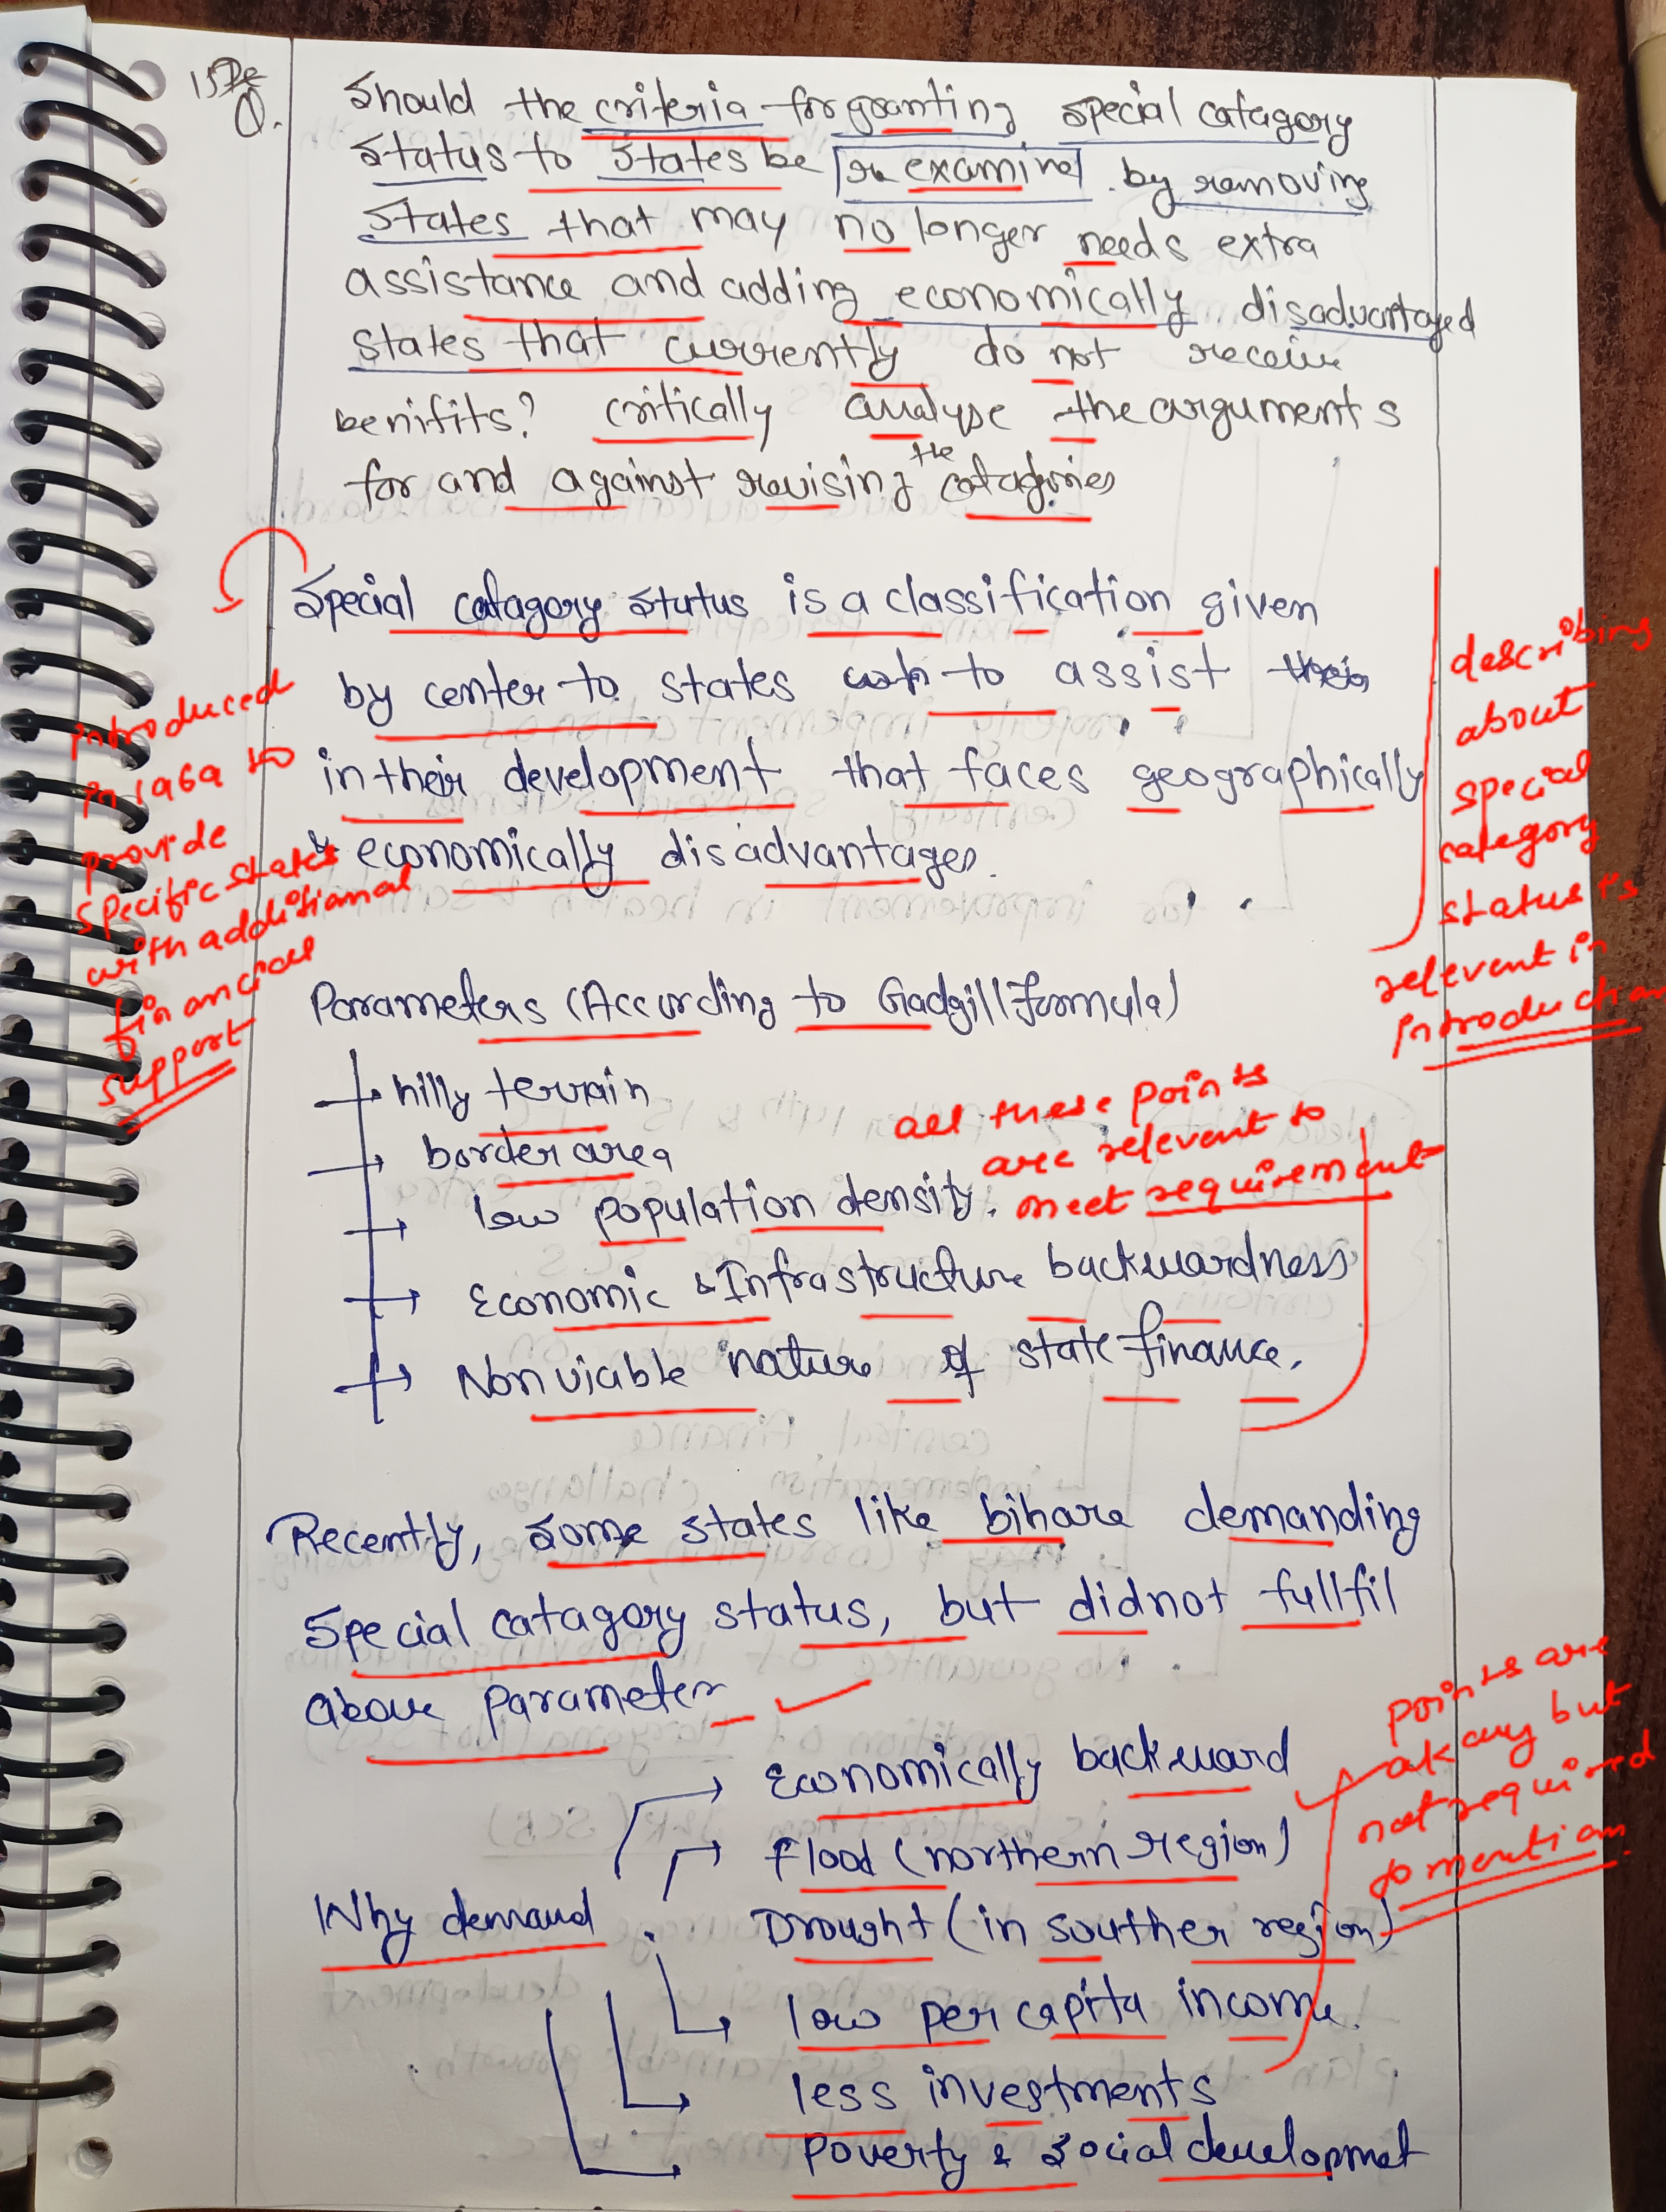 Q.
Should the criteria for granting special catagory
status to states be re examine by removing
states that may no longer needs extra
assistance and adding economically disadvantaged
states that currently do not receive
benifits? critically analyse the arguments
for and against revising the catagories
Special catagory status is a classification given
by center to states to assist
in their development that faces geographically
& economically disadvantages.
introduced
in 1969 to
provide
specific states
with additional
financial
support
describing
about
special
category
status is
relevent in
introduction
Parameters (According to Gadgill formula)
hilly terrain
border area
low population density.
Economic & Infrastructure backwardness
Non viable nature of state finance.
all these points
are relevent to
meet requirement
Recently, some states like bihare demanding
special catagory status, but didnot fullfil
above parameter
Why demand
Economically backward
Flood (northern region)
Drought (in souther region)
low per capita income.
less investments
Poverty & social developmet
points are
okay but
not required
to mention.